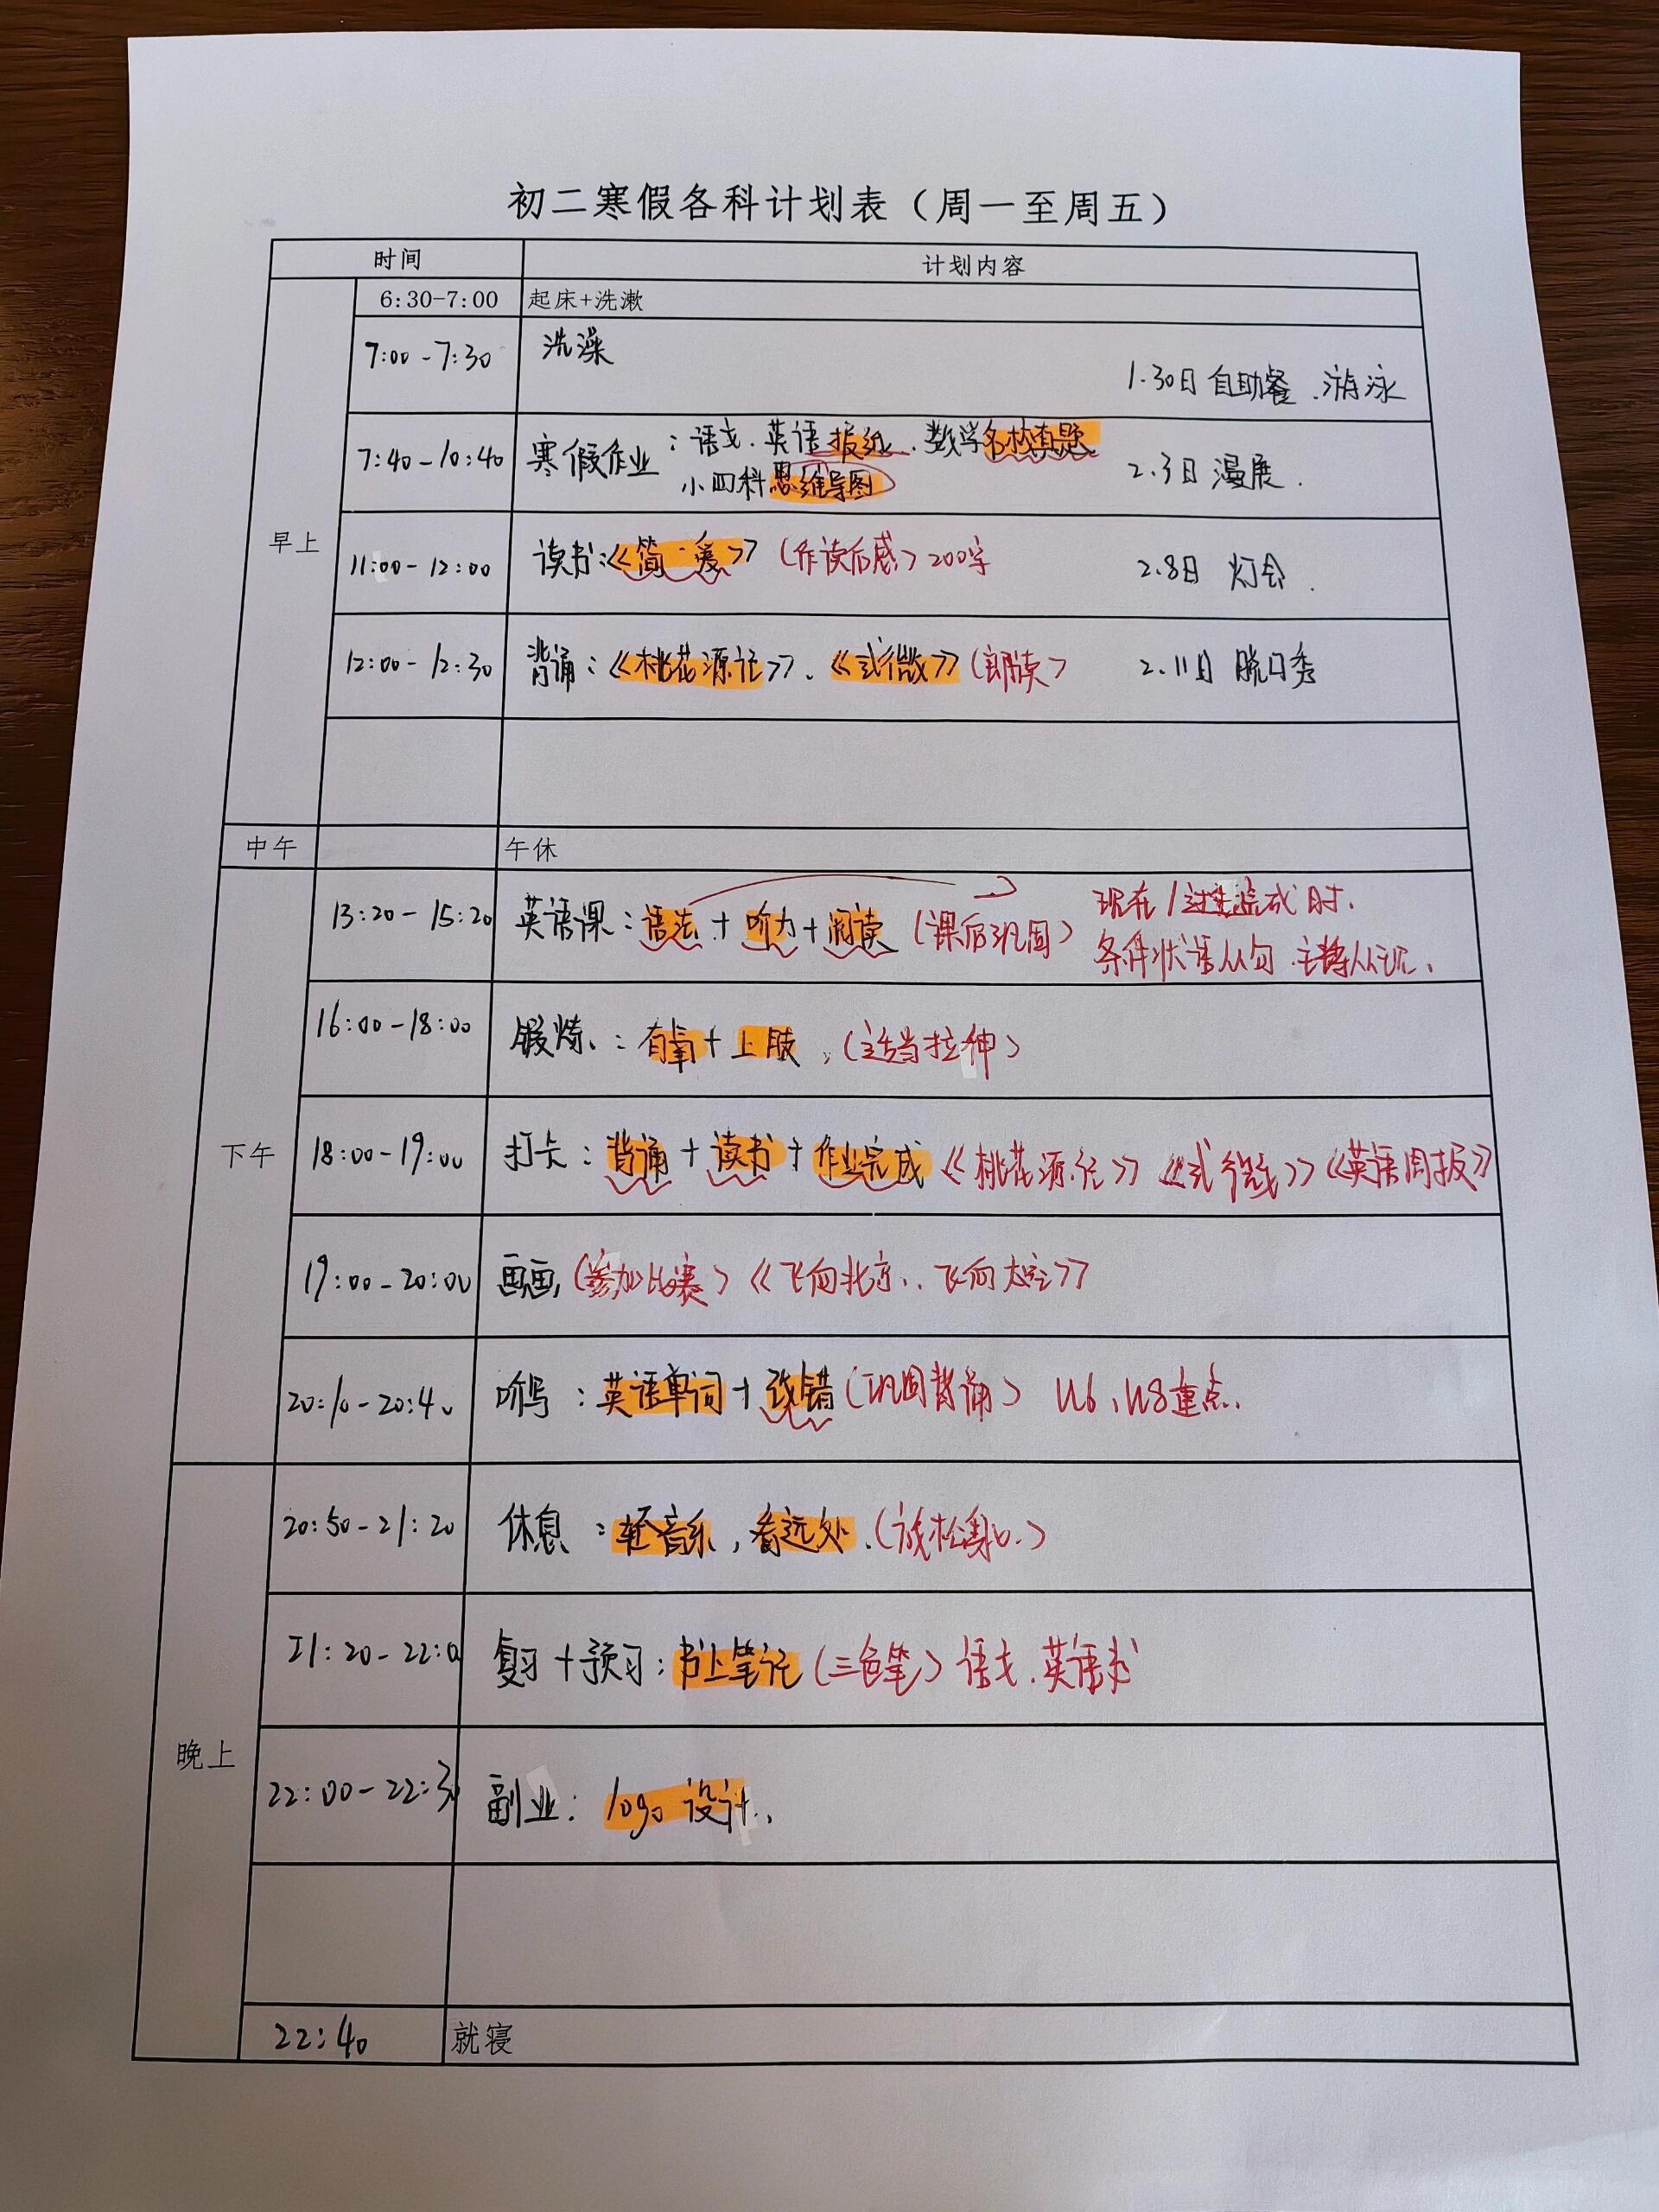 初二寒假各科计划表（周一至周五）
时间 计划内容
早上
6:30-7:00 起床+洗漱
7:00-7:30 洗澡
1.30日 自助餐.游泳
7:40-10:40 寒假作业：语文.英语报纸.数学名校真题
小四科思维导图
2.3日 漫展.
11:00-12:00 读书:《简·爱》(作读后感)200字
2.8日 灯会.
12:00-12:30 背诵:《桃花源记》、《式微》(朗读)
2.11日 脱口秀
中午 午休
下午
13:20-15:20 英语课:语法+听力+阅读(课后巩固)
现在/过去完成时.
条件状语从句.主将从现.
16:00-18:00 锻炼:有氧+上肢,(适当拉伸)
18:00-19:00 打卡:背诵+读书+作业完成《桃花源记》《式微》《英语周报》
19:00-20:00 画画(参加比赛)《飞向北京.飞向太空》
20:10-20:40 听写:英语单词+改错(巩固背诵) U6、U8重点.
晚上
20:50-21:20 休息:轻音乐,看远处.(放松身心)
21:20-22:0 复习+预习:书上笔记(三色笔)语文.英语书
22:00-22:30 副业:logo设计.
22:40 就寝